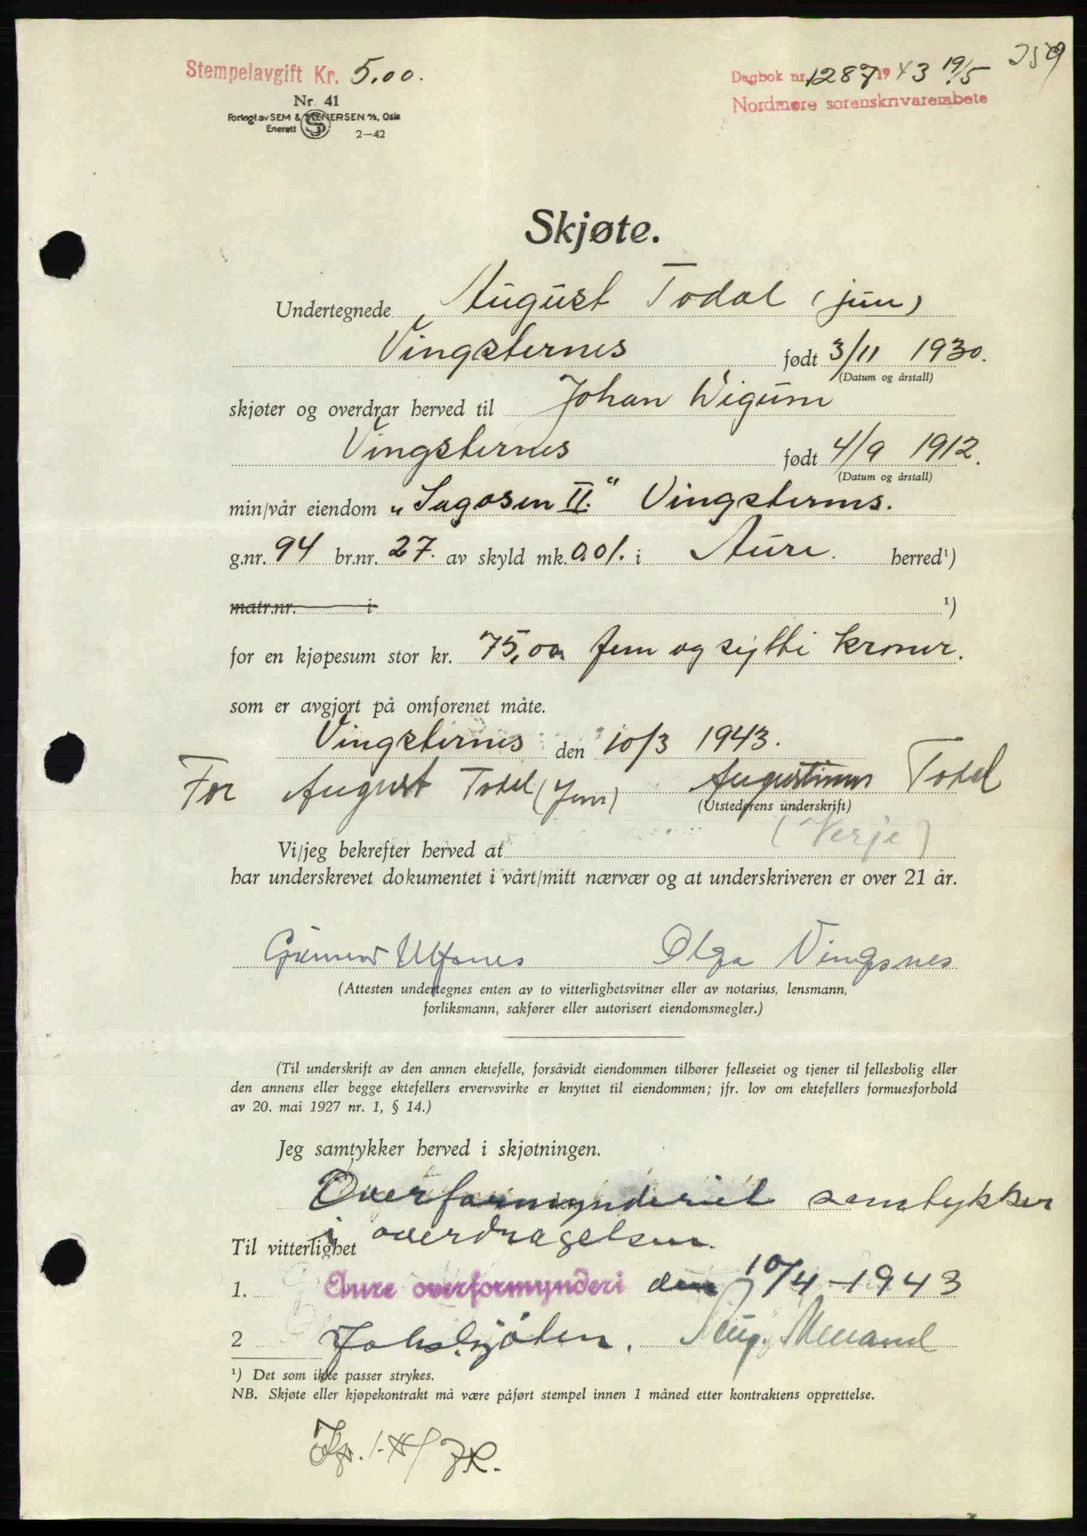 259
Stempelavgift Kr. 5,00.
Dagbok nr. 1287 1943 19/5
Nordmøre sorenskriverembete
Nr. 41
Forlagt av SEM & STENERSEN A/S, Oslo
Enerett
2-42
Skjøte.
Undertegnede August Todal (jun)
Vingsternes født 3/11 1930.
(Datum og årstall)
skjøter og overdrar herved til Johan Wigum
Vingsternes født 4/9 1912.
(Datum og årstall)
min/vår eiendom „Sagosen II." Vingsternes.
g.nr. 94 br.nr. 27. av skyld mk. 0.01. i Aure. herred¹)
matr.nr. i ¹)
for en kjøpesum stor kr. 75,00 fem og sytti kroner.
som er avgjort på omforenet måte.
Vingsternes den 10/3 1943.
For August Todal (Jun) Augustinus Todal
(Utstederens underskrift)
(Verje)
Vi/jeg bekrefter herved at
har underskrevet dokumentet i vårt/mitt nærvær og at underskriveren er over 21 år.
Gunnar Ulfsnes Olga Vingsnes
(Attesten undertegnes enten av to vitterlighetsvitner eller av notarius, lensmann,
forliksmann, sakfører eller autorisert eiendomsmegler.)
(Til underskrift av den annen ektefelle, forsåvidt eiendommen tilhører felleseiet og tjener til fellesbolig eller
den annens eller begge ektefellers ervervsvirke er knyttet til eiendommen; jfr. lov om ektefellers formuesforhold
av 20. mai 1927 nr. 1, § 14.)
Jeg samtykker herved i skjøtningen.
Overformynderiet samtykker
Til vitterlighet i overdragelsen.
1. Aure overformynderi den 10/4 - 1943
2
¹) Det som ikke passer strykes.
NB. Skjøte eller kjøpekontrakt må være påført stempel innen 1 måned etter kontraktens opprettelse.